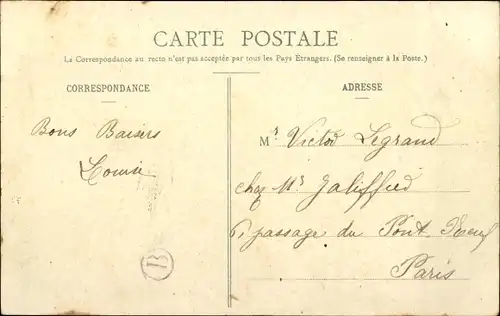 CARTE POSTALE
La Correspondance au recto n'est pas acceptée par tous les Pays Étrangers. (Se renseigner à la Poste.)
CORRESPONDANCE
Bons Baisers
Louise
B
ADRESSE
Mr Victor Legrand
chez Mr
6, passage du Pont Neuf
Paris